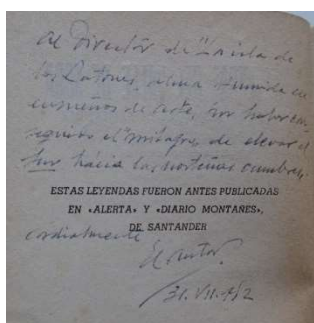 Al Director de "La isla de
los Ratones, alma
ensueños de arte, por haber con-
seguido el milagro de elevar el
Sur hacia las norteñas cumbres,
ESTAS LEYENDAS FUERON ANTES PUBLICADAS
EN «ALERTA» Y «DIARIO MONTAÑES»,
DE SANTANDER
cordialmente
El autor.
31. VII. 952